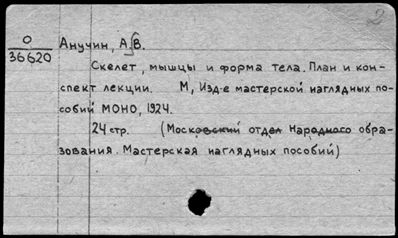 2
О
36620
Анучин, А.В.
Скелет, мышцы и форма тела. План и кон-
спект лекции. М, Изд-е мастерской наглядных по-
собий МОНО, 1924.
24 стр. (Московский отдел Народного обра-
зования. Мастерская наглядных пособий)